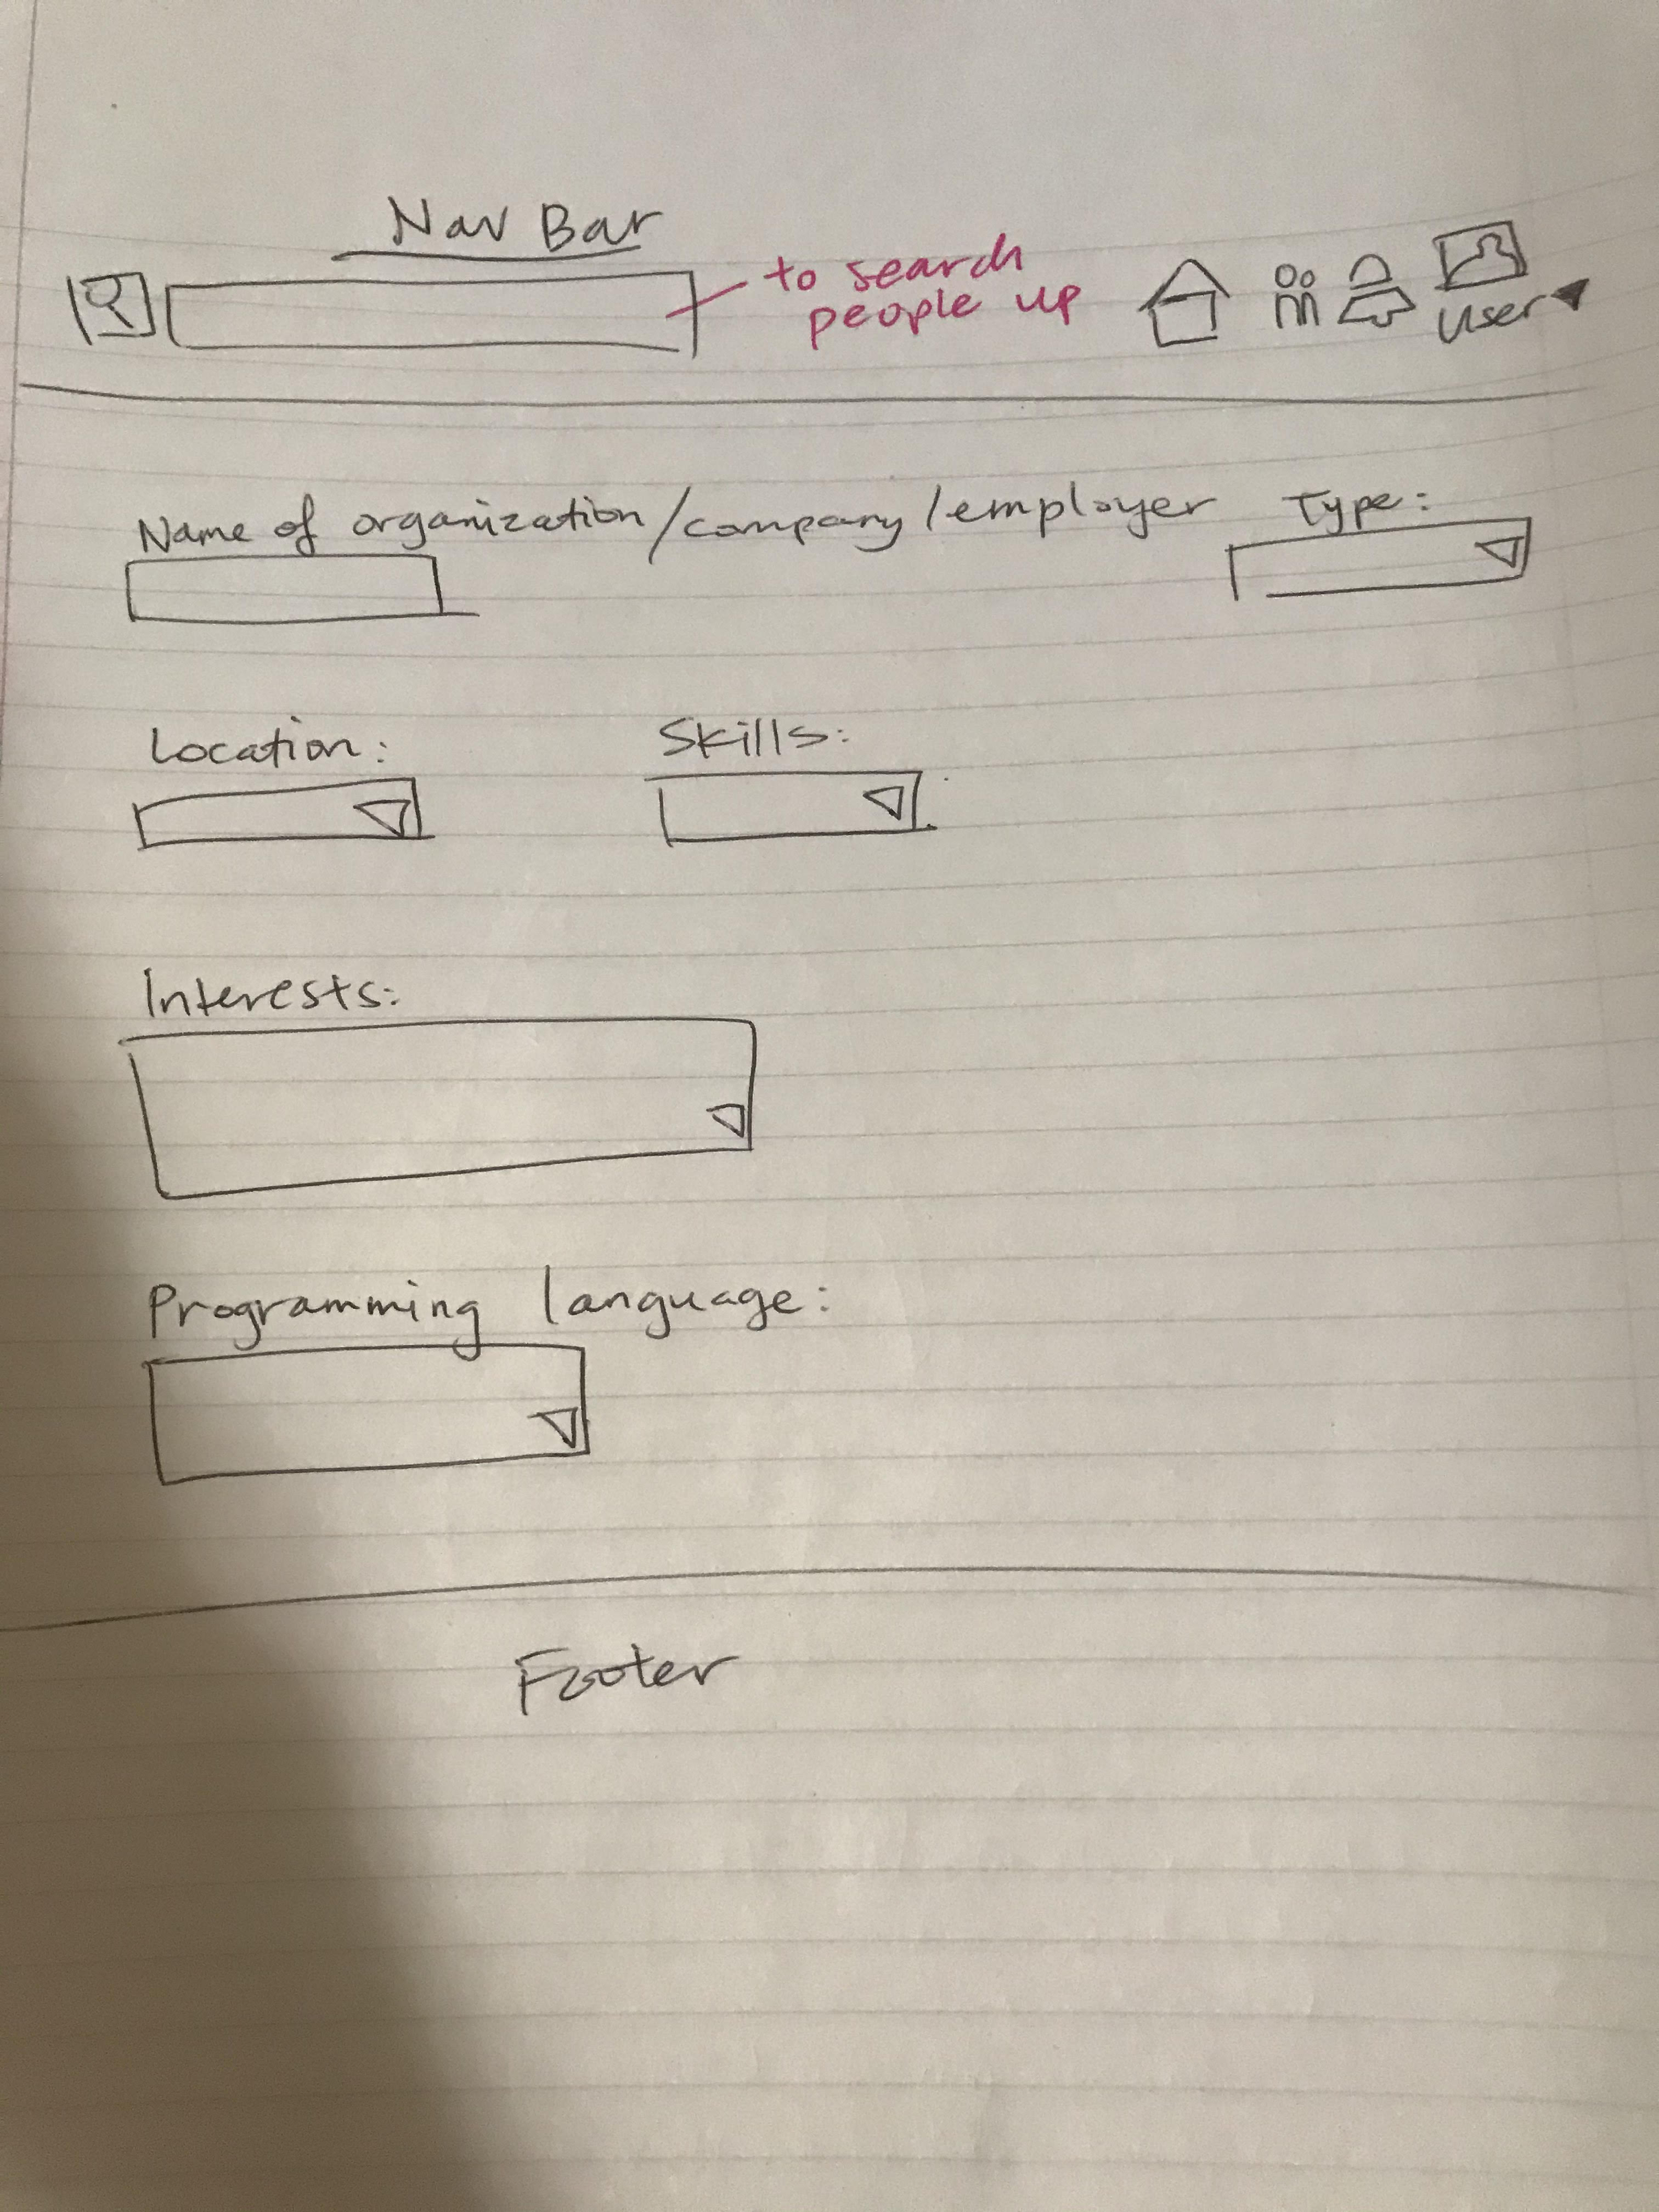 Nav Bar
to search
people up
user
Name of organization/company/employer
Type:
Location:
Skills:
Interests:
Programming language:
Footer